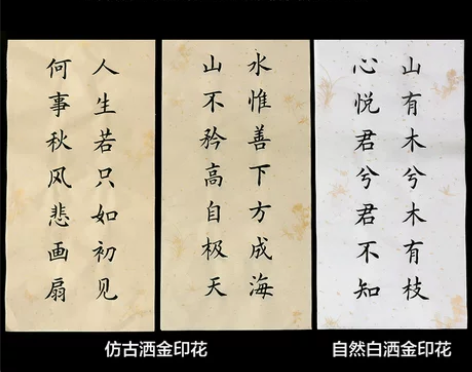 人生若只如初见
何事秋风悲画扇
水惟善下方成海
山不矜高自极天
山有木兮木有枝
心悦君兮君不知
仿古洒金印花
自然白洒金印花